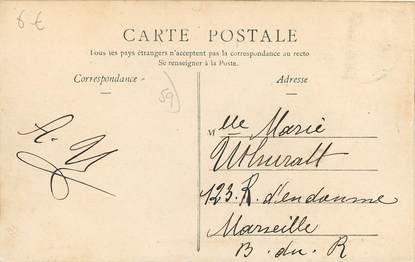 6 €
CARTE POSTALE
Tous les pays étrangers n'acceptent pas la correspondance au recto
Se renseigner à la Poste.
Correspondance
Adresse
59
Mlle Marie
123. R. d'endoume
Marseille
B. du. R